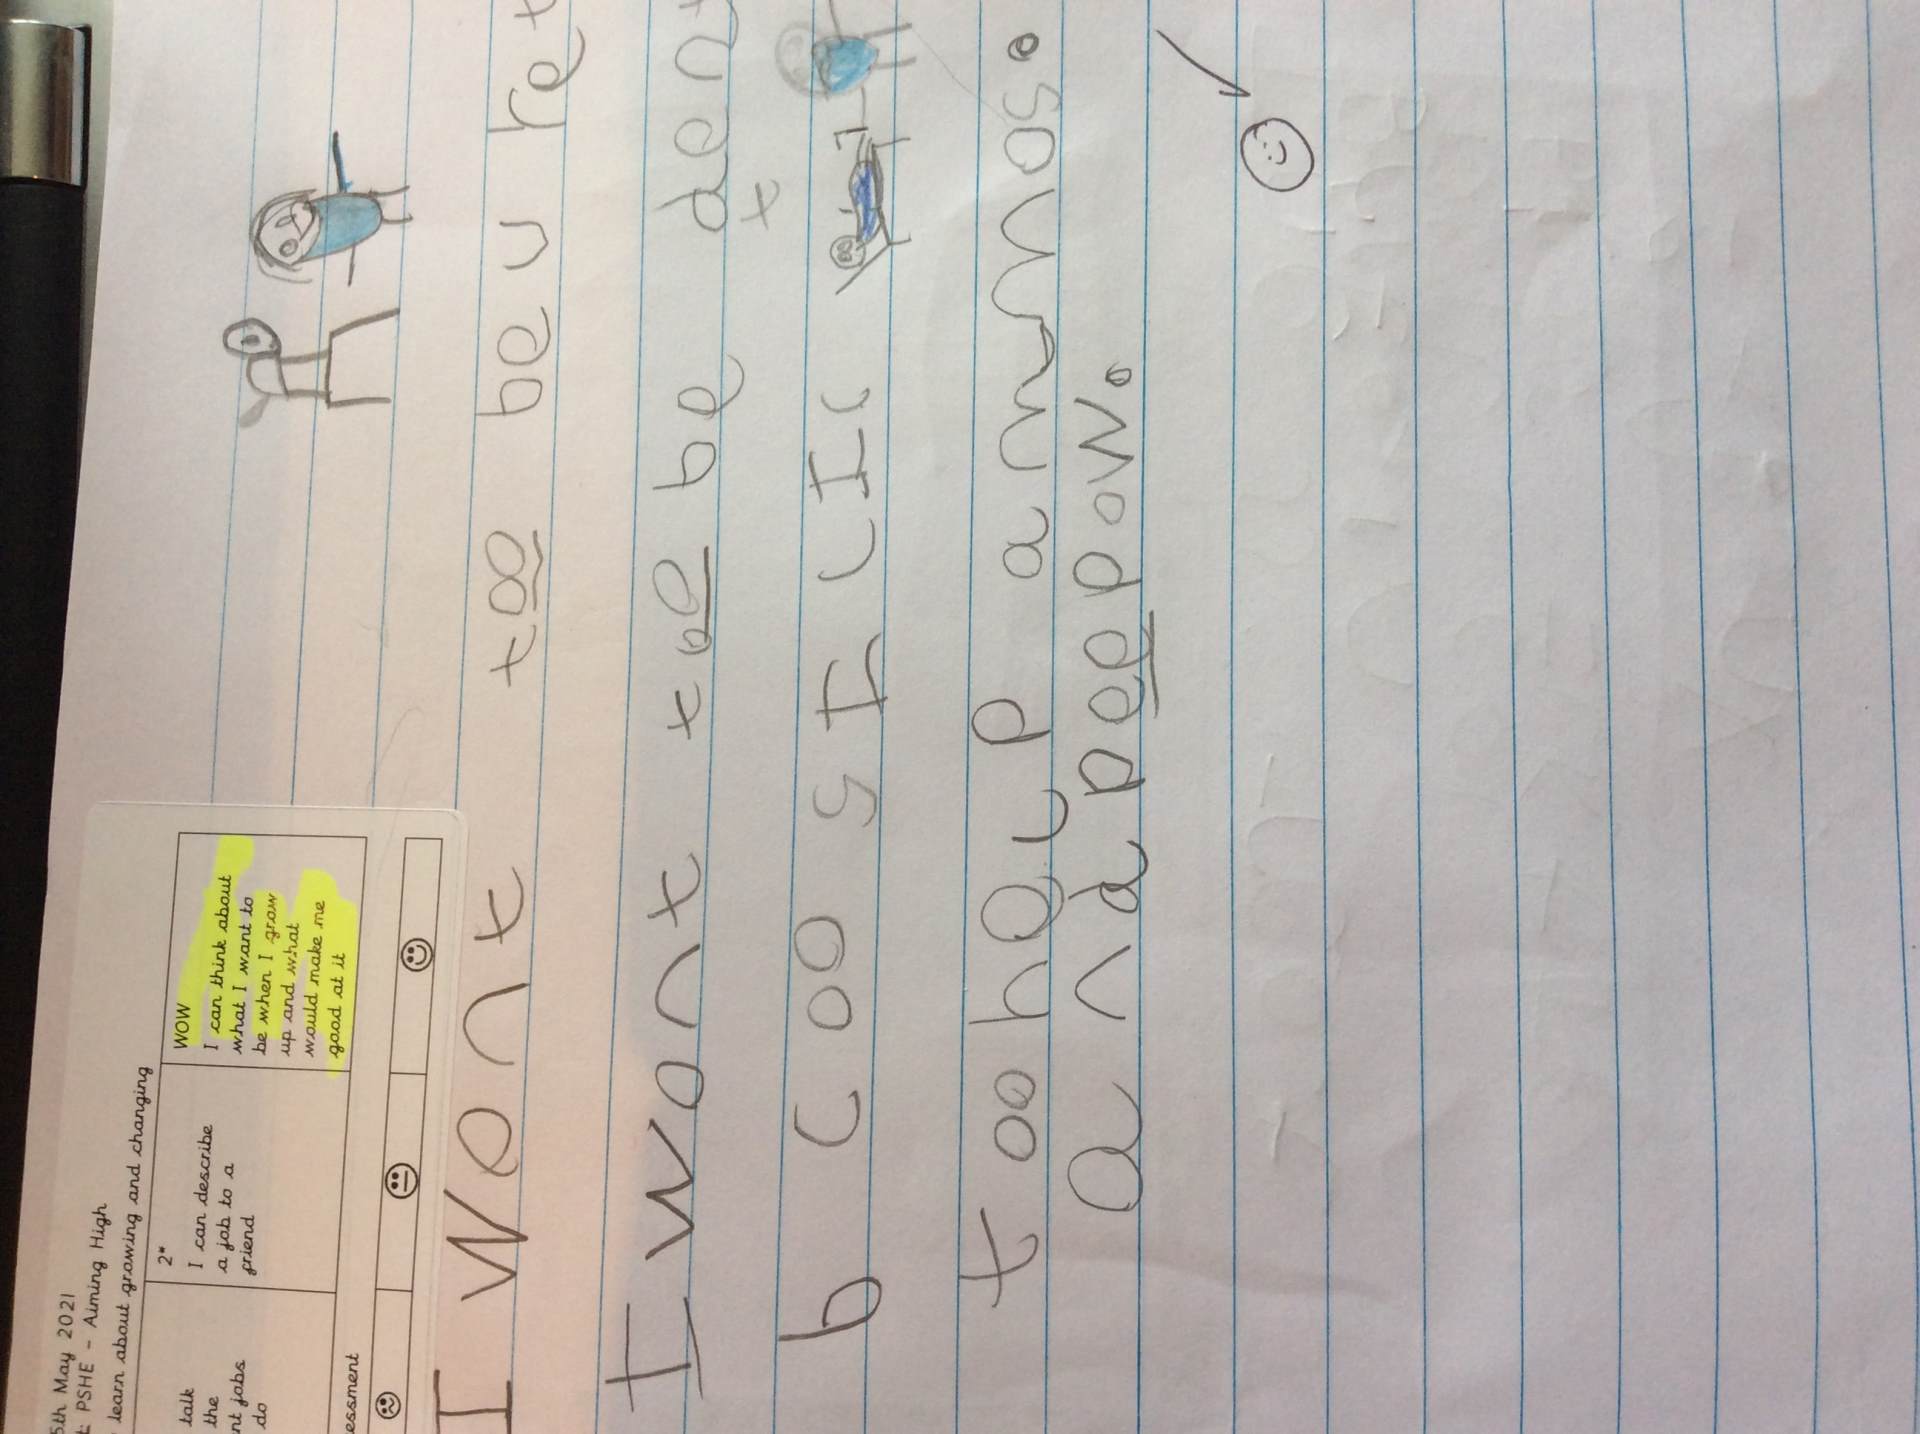 5th May 2021
t: PSHE - Aiming High
learn about growing and changing
talk
the
nt jobs
do
2*
I can describe
a job to a
friend
WOW
I can think about
what I want to
be when I grow
up and what
would make me
good at it
essment
I Wont too be u vet
I wont to be be dent
t
b c o o s I I
too help ammos.
and peepow.